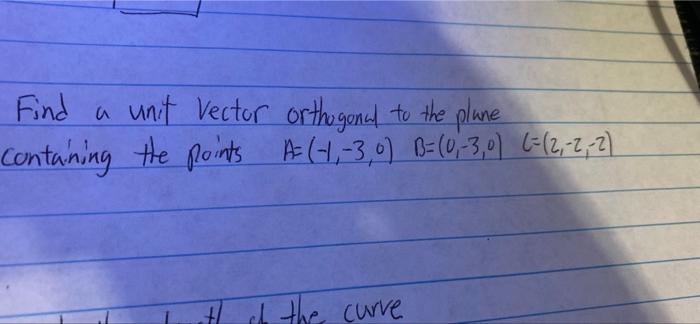 Find a unit vector orthogonal to the plane
containing the points A=(-1,-3,0) B=(0,-3,0) C=(2,-2,-2)
the curve